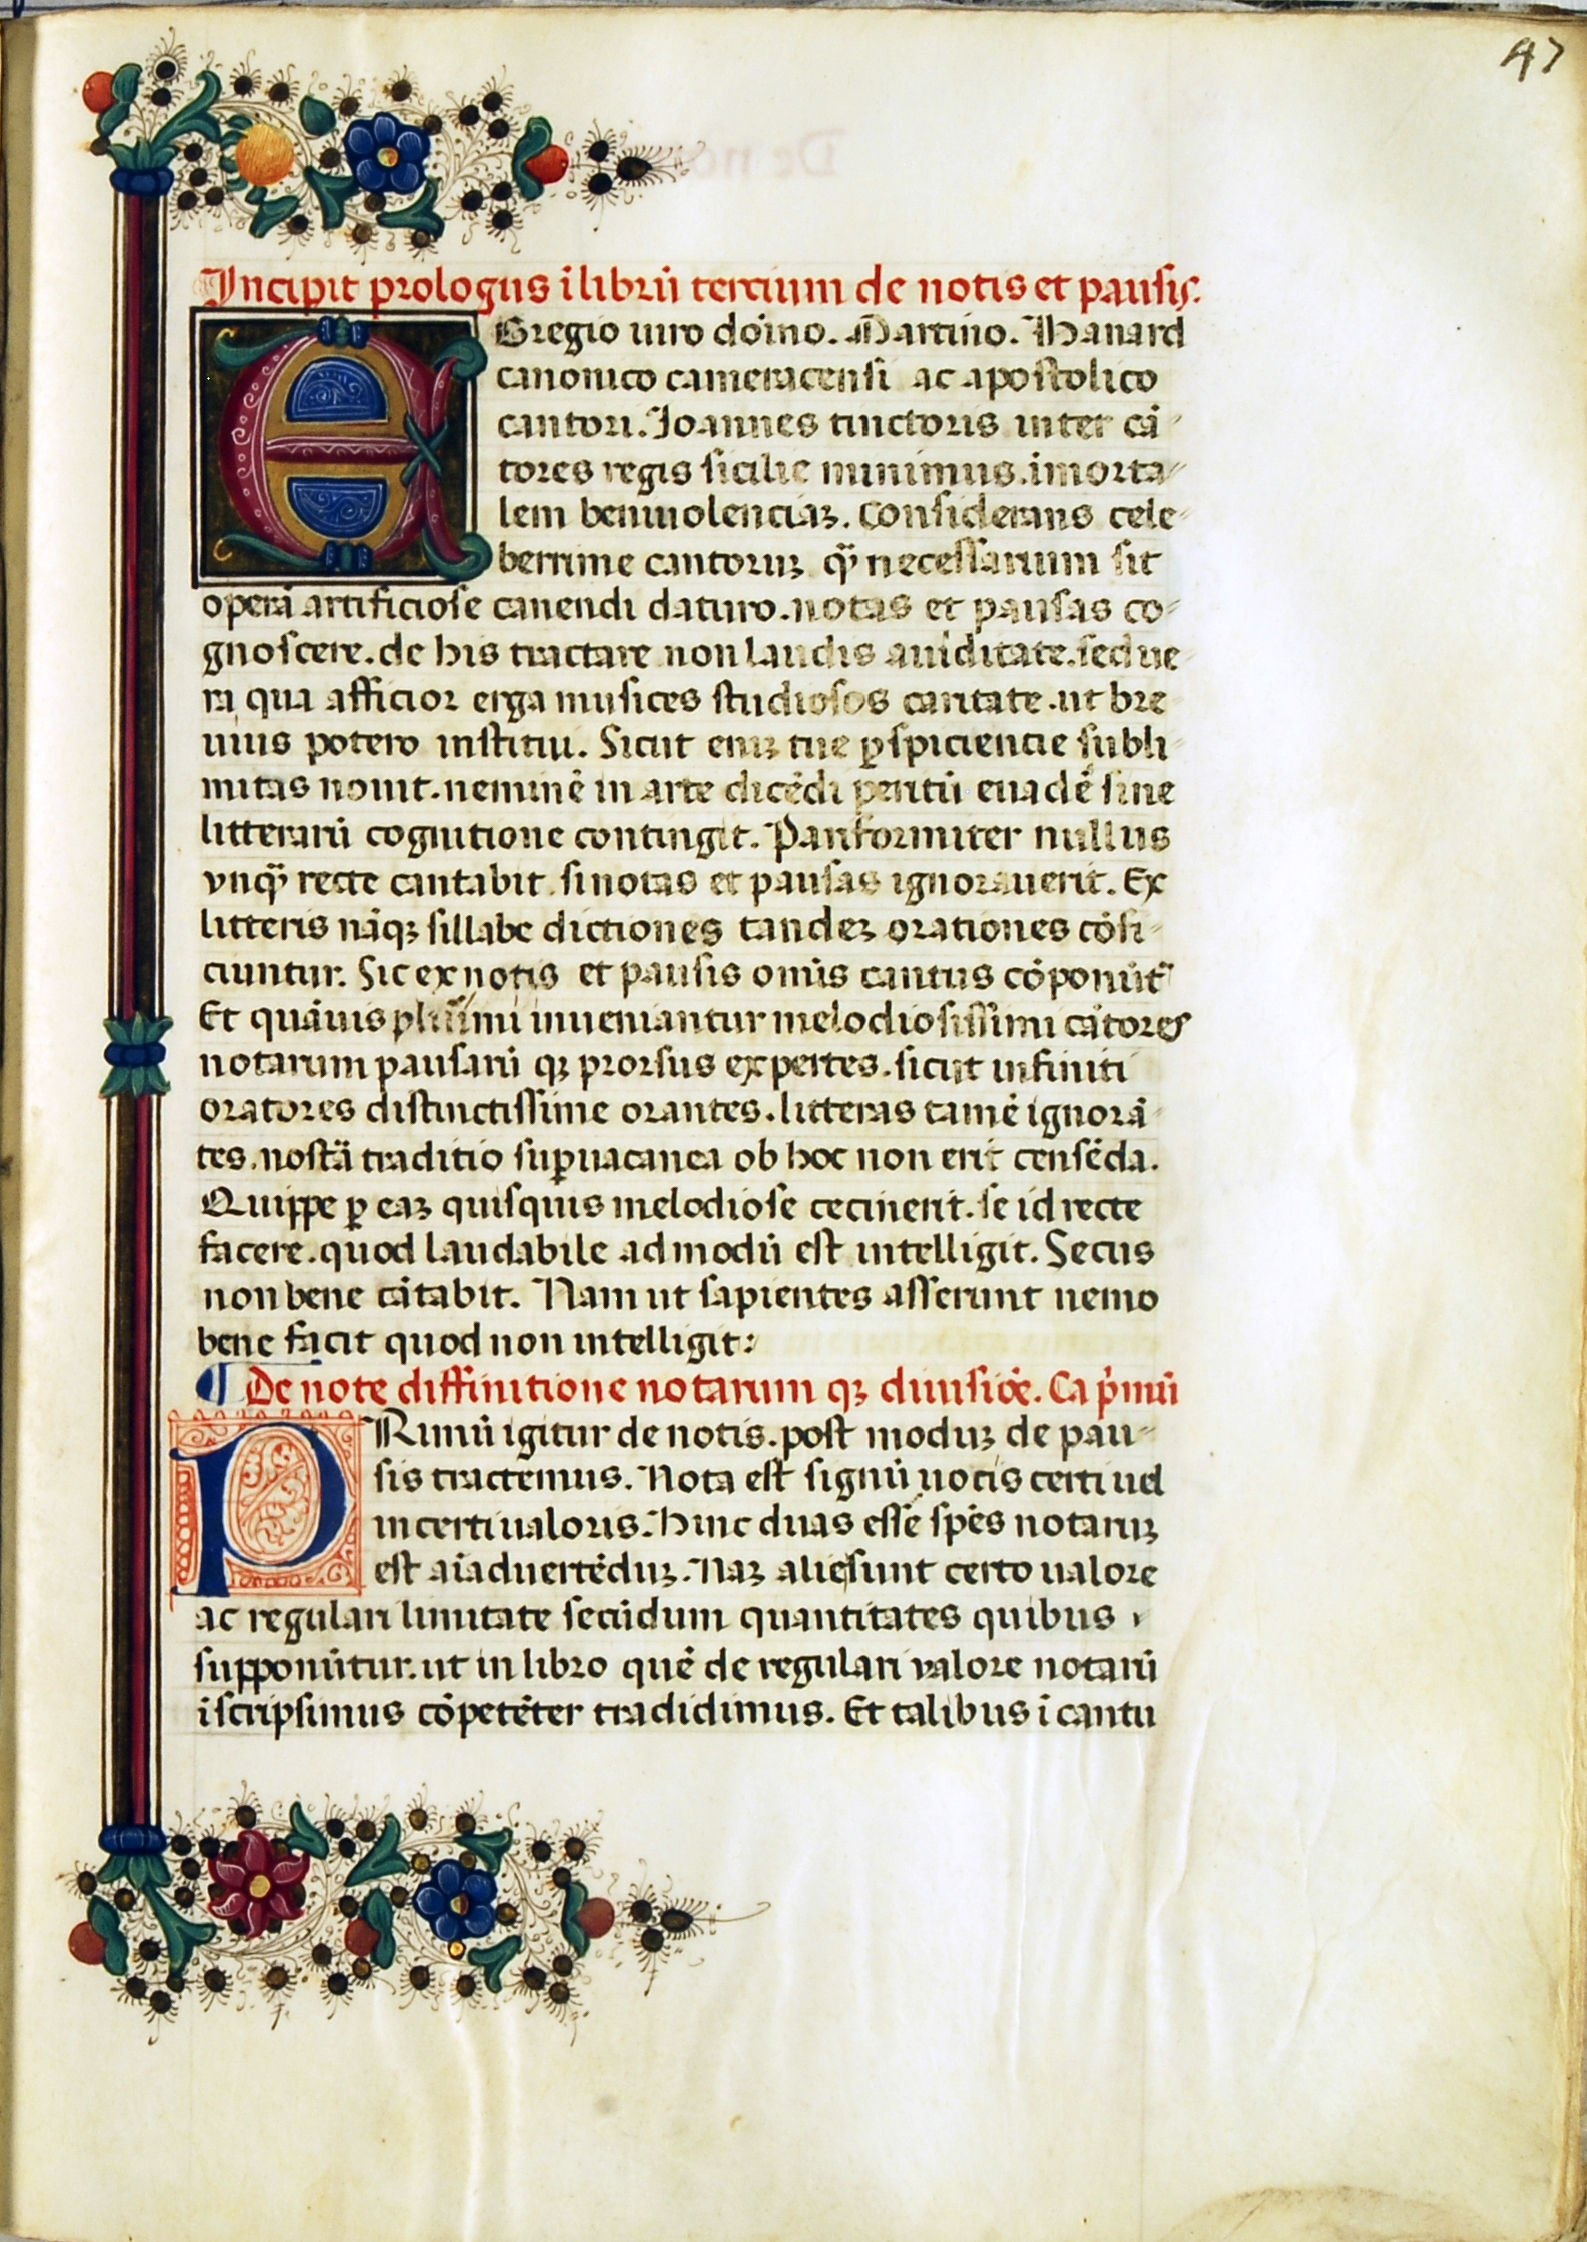 47
Incipit prologus ī librū tercium de notis et pausis.
EGregio uiro domino. Martino. Hanard
canonico cameracensi ac apostolico
cantori. Joannes tinctoris inter cā-
tores regis sicilie minimus. imorta-
lem beniuolenciaꝫ. Considerans cele-
berrime cantoruꝫ qͣ̄ necessarium sit
operā artificiose canendi daturo. notas et pausas co-
gnoscere. de his tractare non laudis auiditate. sed ue
ra qua afficior erga musices studiosos caritate. ut bre
uius potero institui. Sicut eniꝫ tue ꝑspiciencie subli-
mitas nouit. neminē in arte dicēdi peritū euadē sine
litterarū cognitione contingit. Pariformiter nullus
vnqͣ̄ recte cantabit. si notas et pausas ignorauerit. Ex
litteris nāqꝫ sillabe dictiones tandeꝫ orationes cōfi-
ciuntur. Sic ex notis et pausis omīs cantus cōponūt᷑
Et quāuis plurīmi inueniantur melodiosissimi cātores
notarum pausarū qꝫ prorsus expertes. sicut infiniti
oratores distinctissime orantes. litteras tamē ignorā-
tes. nostā traditio suꝑuacanea ob hoc non erit censēda.
Quippe ꝑ eaꝫ quisquis melodiose cecinerit. se id recte
facere. quod laudabile ad modū est intelligit. Secus
non bene cātabit. Nam ut sapientes asserunt nemo
bene facit quod non intelligit:
¶ De note diffinitione notarum qꝫ diuisiōe. Ca p̄mū
PRimū igitur de notis. post moduꝫ de pau-
sis tractemus. Nota est signū uocis certi uel
incerti ualoris. Hinc duas esse spēs notaruꝫ
est aīaduertēduꝫ. Naꝫ alie sunt certo ualore
ac regulari limitate secūdum quantitates quibus
supponūtur. ut in libro quē de regulari valore notarū
iscripsimus cōpetēter tradidimus. Et talibus ī cantu